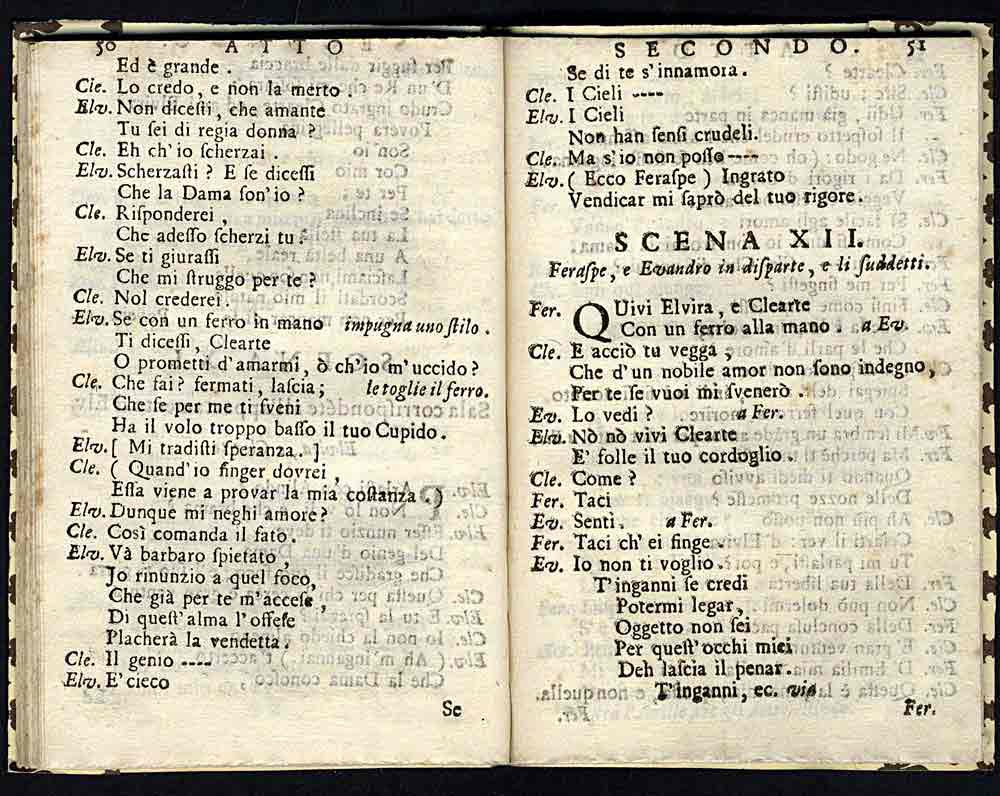 50 ATTO
Ed è grande.
Cle. Lo credo, e non la merto
Elv. Non diceſti, che amante
Tu ſei di regia donna?
Cle. Eh ch'io ſcherzai.
Elv. Scherzaſti? E ſe diceſſi
Che la Dama ſon'io?
Cle. Riſponderei,
Che adeſſo ſcherzi tu.
Elv. Se ti giuraſſi
Che mi ſtruggo per te?
Cle. Nol crederei.
Elv. Se con un ferro in mano impugna uno ſtilo.
Ti diceſſi, Clearte
O prometti d'amarmi, ò ch'io m'uccido?
Cle. Che fai? fermati, laſcia; le toglie il ferro.
Che ſe per me ti ſveni
Ha il volo troppo baſſo il tuo Cupido.
Elv. [ Mi tradiſti ſperanza. ]
Cle. ( Quand'io finger dovrei,
Eſſa viene a provar la mia coſtanza. )
Elv. Dunque mi neghi amore?
Cle. Così comanda il fato.
Elv. Và barbaro ſpietato,
Jo rinunzio a quel foco,
Che già per te m'acceſe,
Di queſt'alma l'offeſe
Placherà la vendetta.
Cle. Il genio ----
Elv. E' cieco
Se
SECONDO. 51
Se di te s'innamora.
Cle. I Cieli ----
Elv. I Cieli
Non han ſenſi crudeli.
Cle. Ma s'io non poſſo ----
Elv. ( Ecco Feraſpe ) Ingrato
Vendicar mi ſaprò del tuo rigore.
SCENA XII.
Feraſpe, e Evandro in diſparte, e li ſuddetti.
Fer. QUivi Elvira, e Clearte
Con un ferro alla mano. a Ev.
Cle. E acciò tu vegga,
Che d'un nobile amor non ſono indegno,
Per te ſe vuoi mi ſvenerò.
Ev. Lo vedi? a Fer.
Elv. Nò nò vivi Clearte
E' folle il tuo cordoglio.
Cle. Come?
Fer. Taci
Ev. Senti. a Fer.
Fer. Taci ch' ei finge.
Ev. Io non ti voglio.
T'inganni ſe credi
Potermi legar,
Oggetto non ſei
Per queſt'occhi miei
Deh laſcia il penar.
T'inganni, ec. via
Fer.